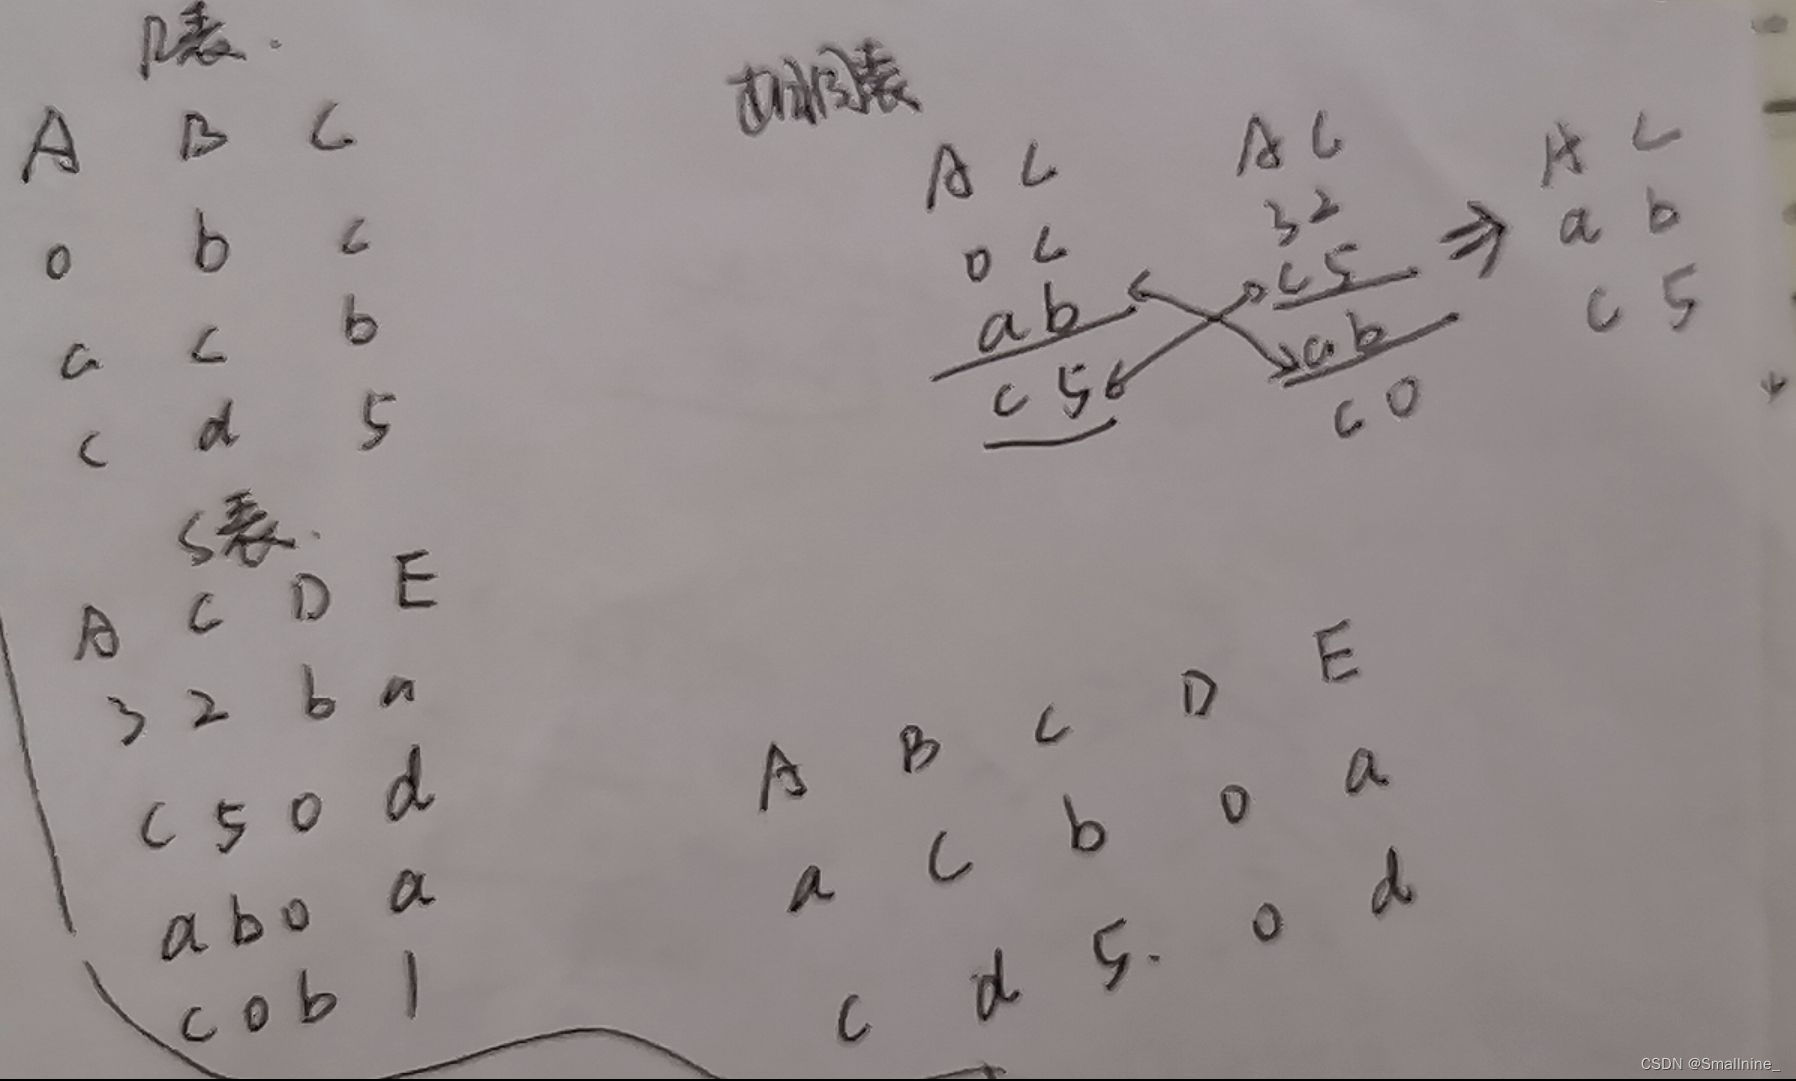 R表.
A B C
0 b c
a c b
c d 5
S表.
A C D E
3 2 b a
c 5 0 d
a b 0 a
c 0 b 1
相同表
A C
0 c
a b
c 5
A C
3 2
c 5
a b
c 0
⇒
A C
a b
c 5
A B C D E
a c b 0 a
c d 5. 0 d
CSDN @Smallnine_